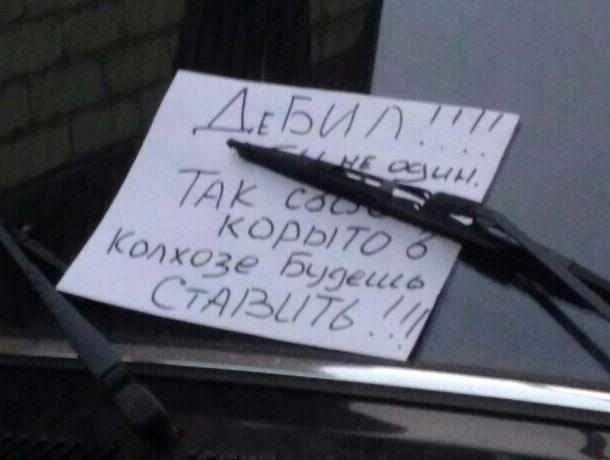 ДЕБИЛ!!!!
ТЫ НЕ ОДИН.
ТАК СВОЕ
КОРЫТО В
КОЛХОЗЕ БУДЕШЬ
СТАВИТЬ!!!